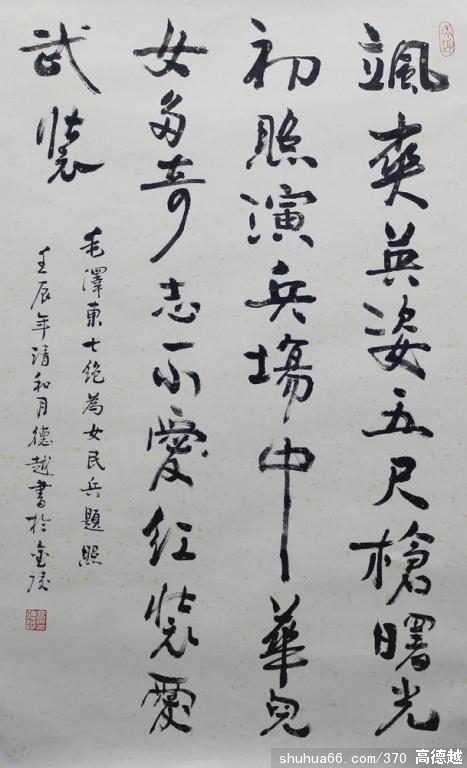 颯爽英姿五尺槍曙光
初照演兵場中華兒
女多奇志不愛紅裝愛
武裝
毛澤東七絕為女民兵題照
壬辰年清和月德越書於金陵
shuhua66.com/370 高德越